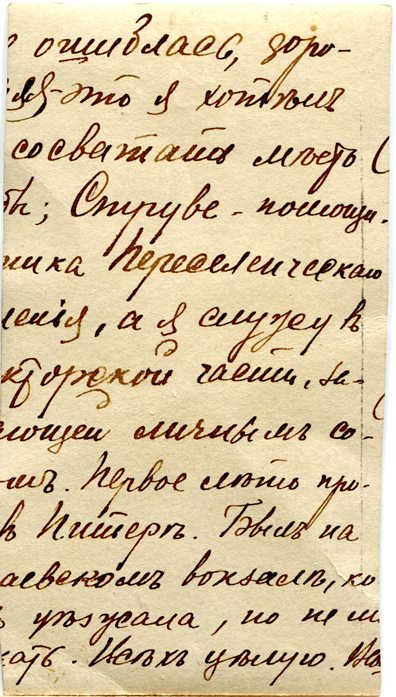 ошиблась, доро-
я-это я хотѣлъ
сосватать мѣсть
бѣ; Струве - помощн-
ника Переселенческаго
ленія, а я служу въ
кторской части, за-
ющей личнымъ со-
мъ. Первое лѣто про-
въ Питерѣ. Былъ на
аевскомъ вокзалѣ, ко-
уѣзжала, но не м
кать. Всѣхъ цѣлую. В